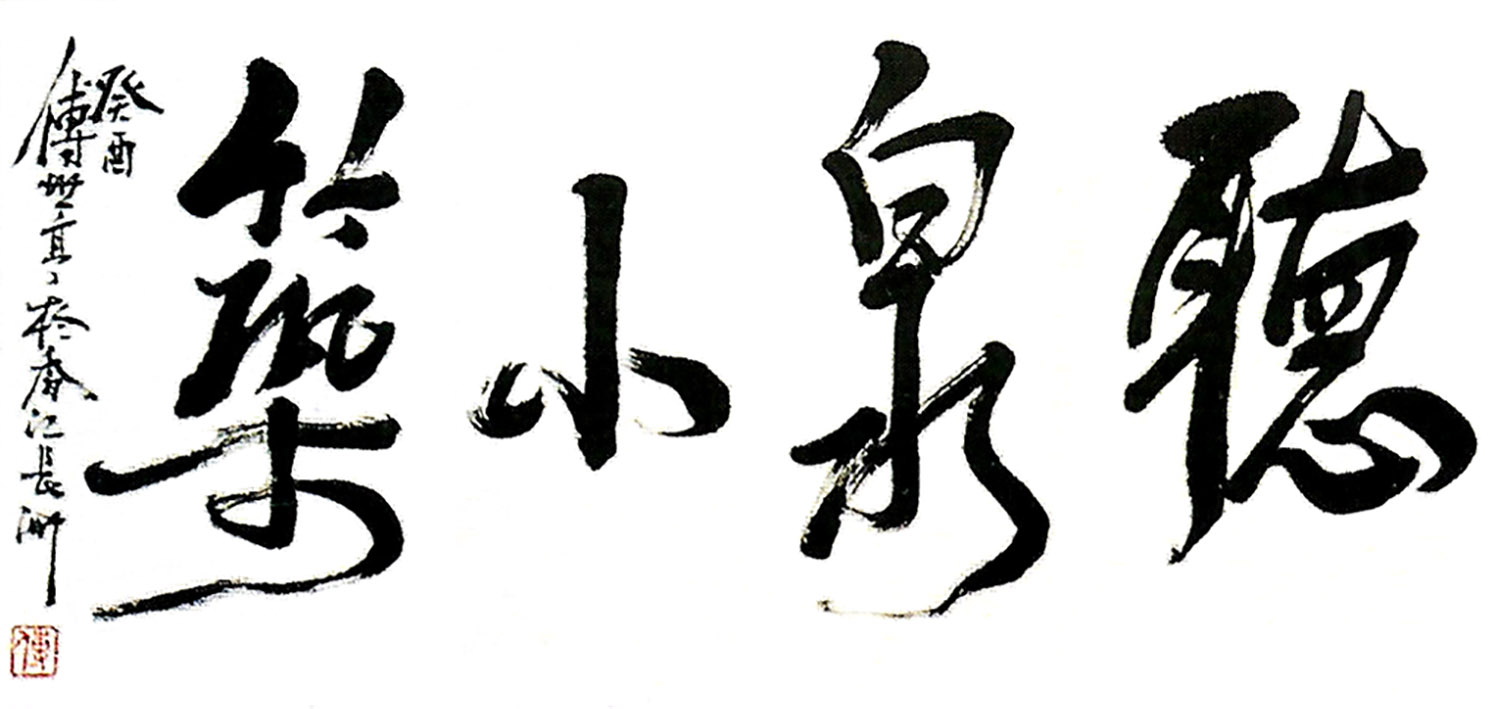 聽泉小築
癸酉
傅世亨於香江長洲
傅